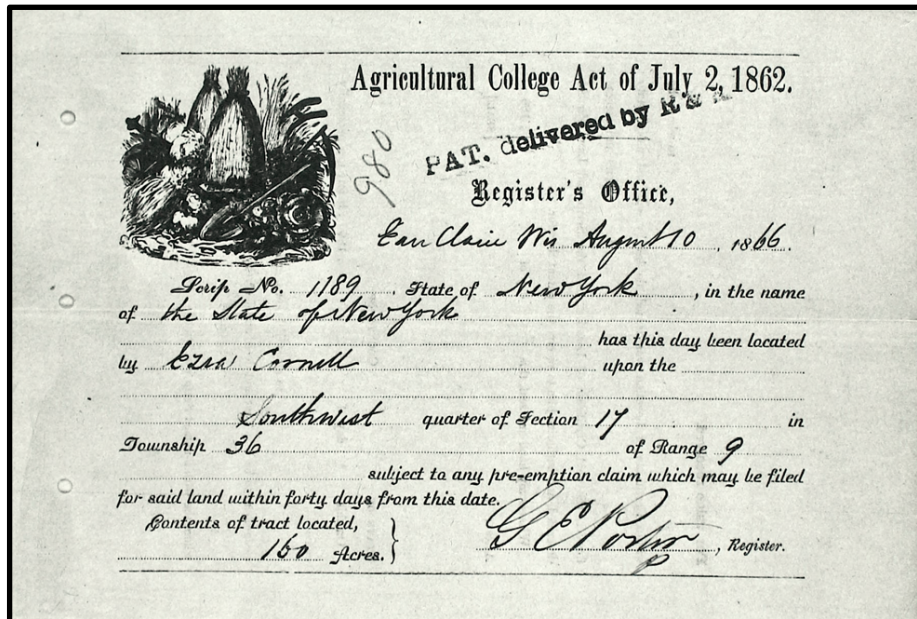 Agricultural College Act of July 2, 1862.
980
PAT. delivered by R &
Register's Office,
Eau Claire Wis August 10, 1866.
Scrip No. 1189. State of New York, in the name
of the State of New York
has this day been located
by Ezra Cornell upon the
Southwest quarter of Section 17 in
Township 36 of Range 9
subject to any pre-emption claim which may be filed
for said land within forty days from this date.
Contents of tract located,
160 Acres.
G E Porter, Register.